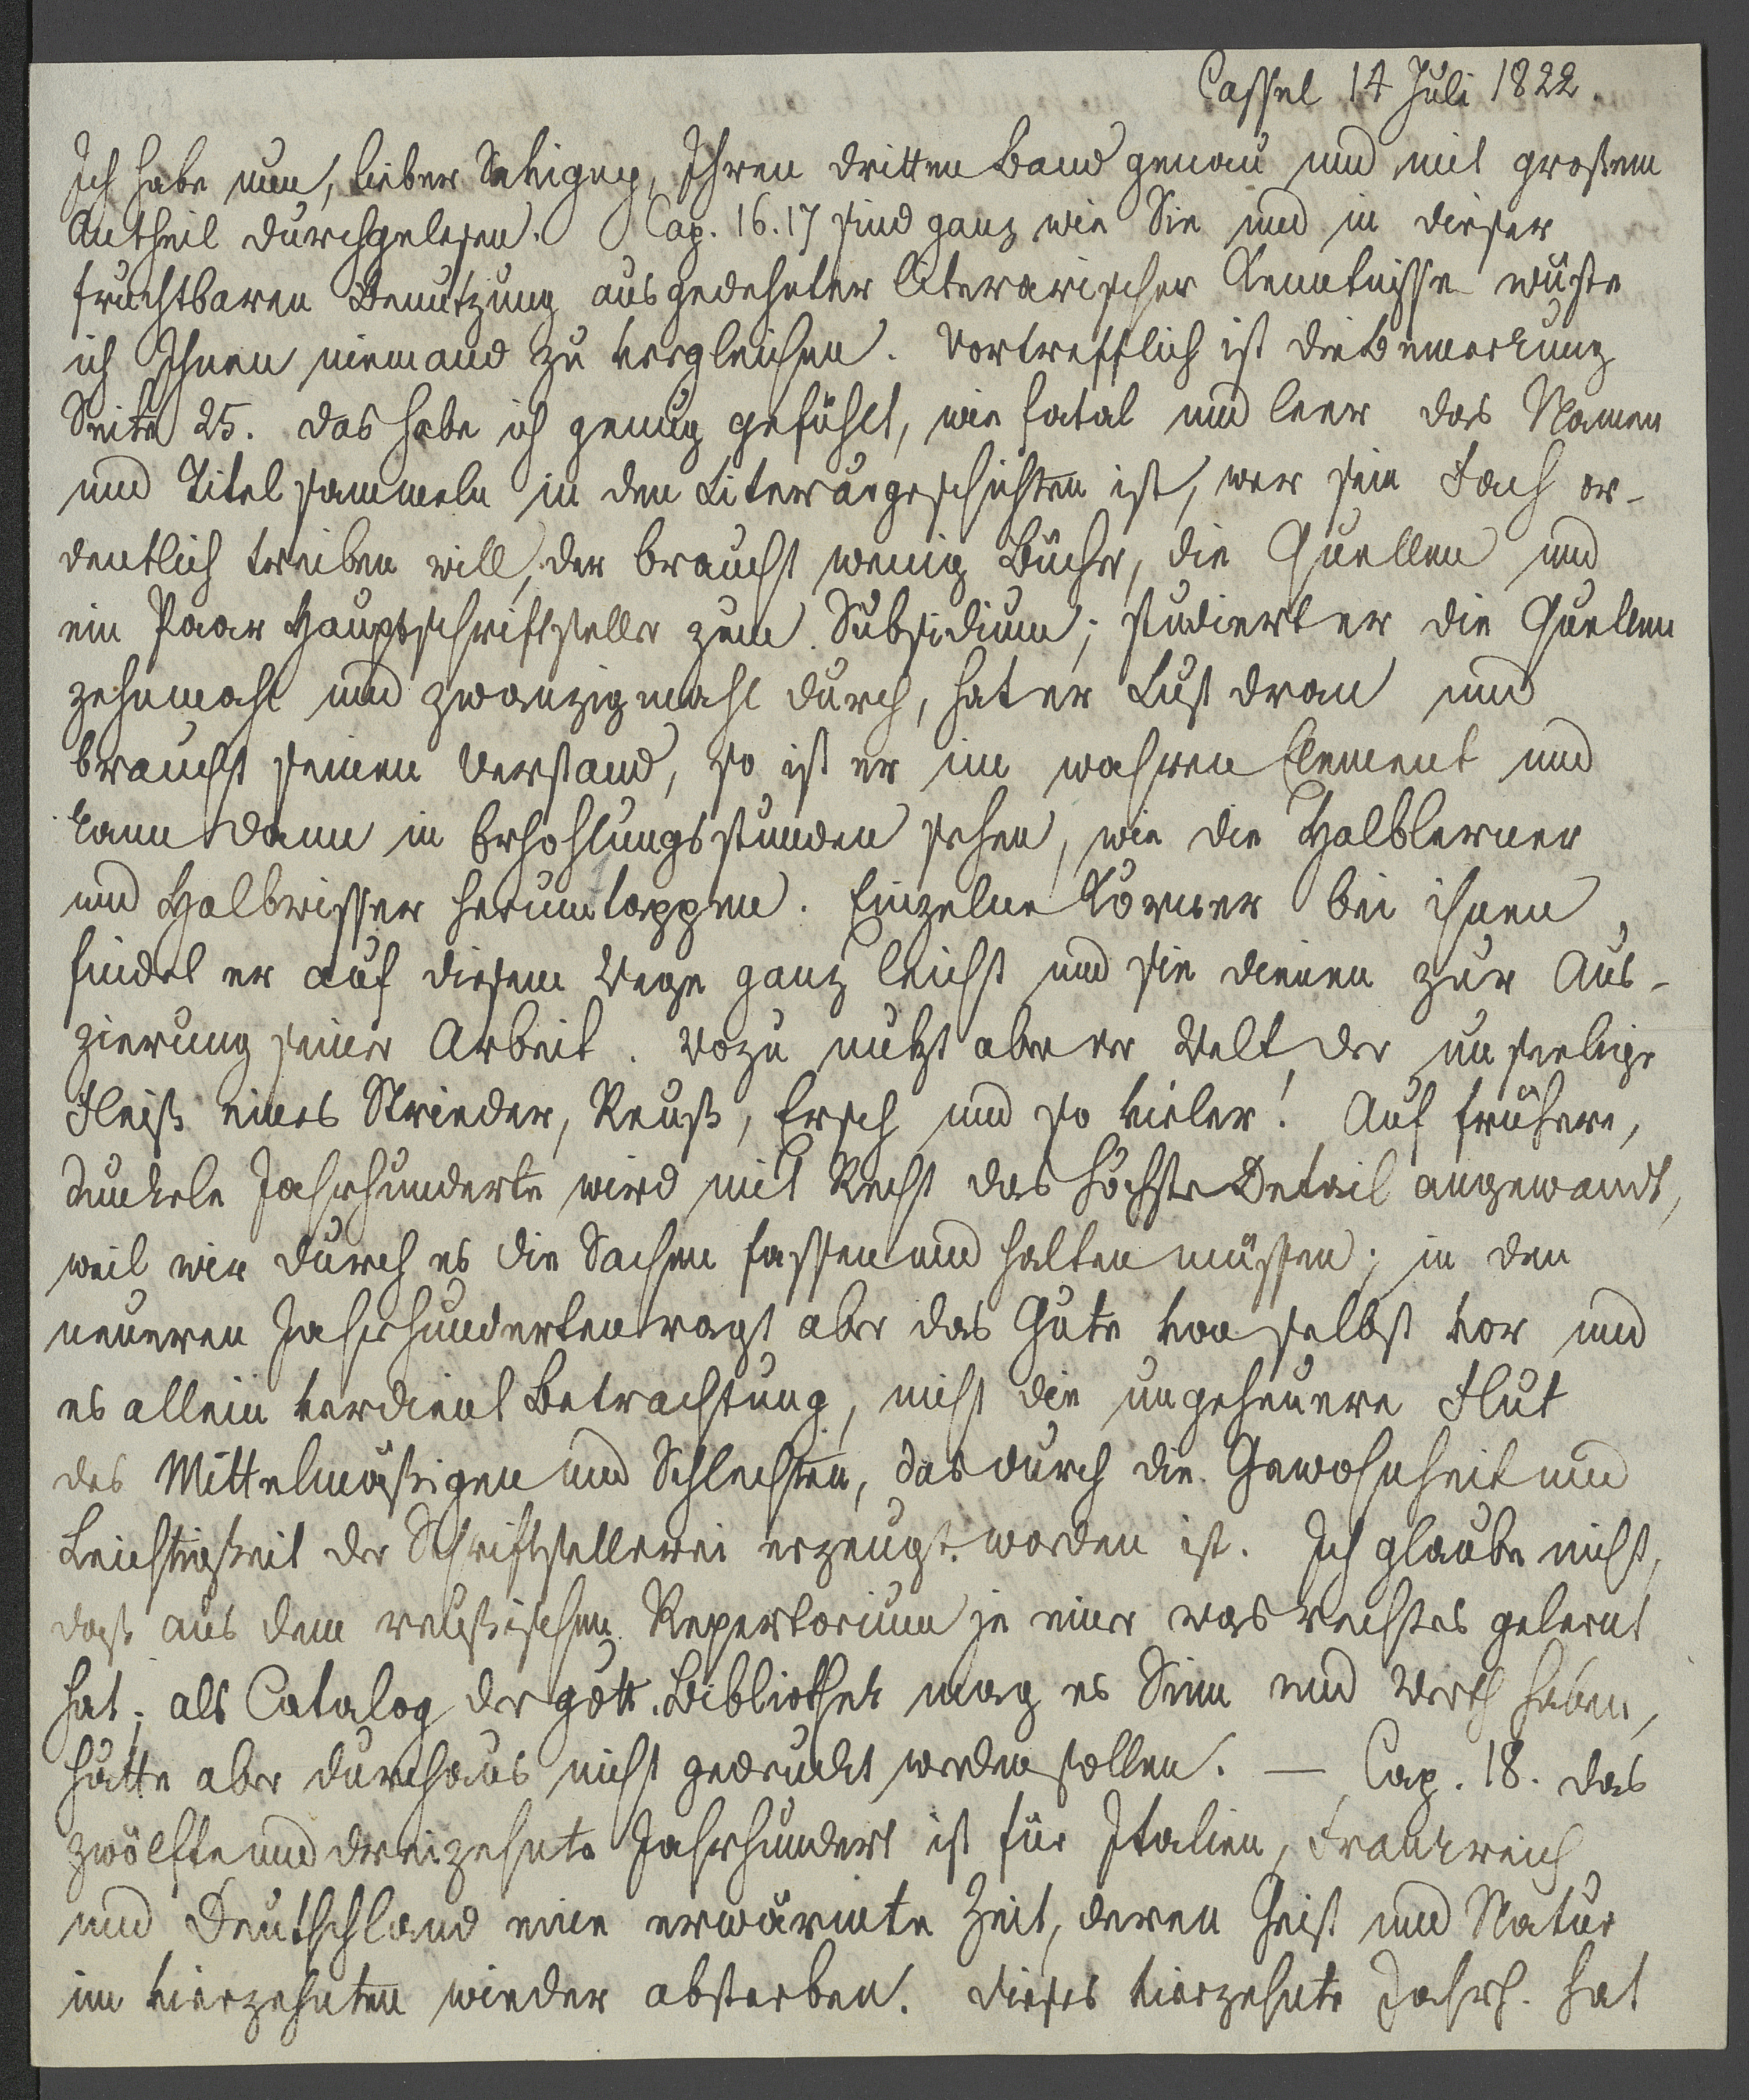 Cassel 14 Juli 1822.
Ich habe nun, lieber Savigny, Ihren dritten Band genau und mit großem
Antheil durchgelesen. Cap. 16. 17 sind ganz wie Sie und in dieser
fruchtbaren Benutzung ausgedehnter literarischer Kenntnisse wüste
ich Ihnen niemand zu vergleichen. Vortrefflich ist die Bemerkung
Seite 25. das habe ich genug gefühlt, wie fatal und leer das Namen
und Titel sammeln in den Literärgeschichten ist, wer sein Fach or-
dentlich treiben will, der braucht wenig Bücher, die Quellen und
ein Paar Hauptschriftsteller zum Subsidium; studiert er die Quellen
zehnmahl und zwanzigmahl durch, hat er Lust dran und
braucht seinen Verstand, so ist er im wahren Element und
kann dann in Erhohlungsstunden sehen, wie die Halblerner
und Halbwisser herumtappen. Einzelne Körner bei ihnen
findet er auf diesem Wege ganz leicht und sie dienen zur Aus-
zierung seiner Arbeit. Wozu nutzt aber der Welt der unseelige
Fleiß eines Strieder, Reuß, Ersch und so vieler! Auf frühere,
dunkele Jahrhunderte wird mit Recht das höchste Detail angewandt,
weil wir durch es die Sachen fassen und halten müssen; in den
neueren Jahrhunderten ragt aber das Gute von selbst vor und
es allein verdient Betrachtung, nicht die ungeheuere Flut
des Mittelmäßigen und Schlechten, das durch die Gewohnheit und
Leichtigkeit der Schriftstellerei erzeugt worden ist. Ich glaube nicht,
daß aus dem reußischen Repertorium je einer was rechtes gelernt
hat; als Catalog der gött. Bibliothek mag es Sinn und Werth haben,
hätte aber durchaus nicht gedruckt werden sollen. — Cap. 18. das
zwölfte und dreizehnte Jahrhundert ist für Italien, Frankreich
und Deutschland eine erwärmte Zeit, deren Geist und Natur
im vierzehnten wieder absterben. dieses vierzehnte Jahrh. hat